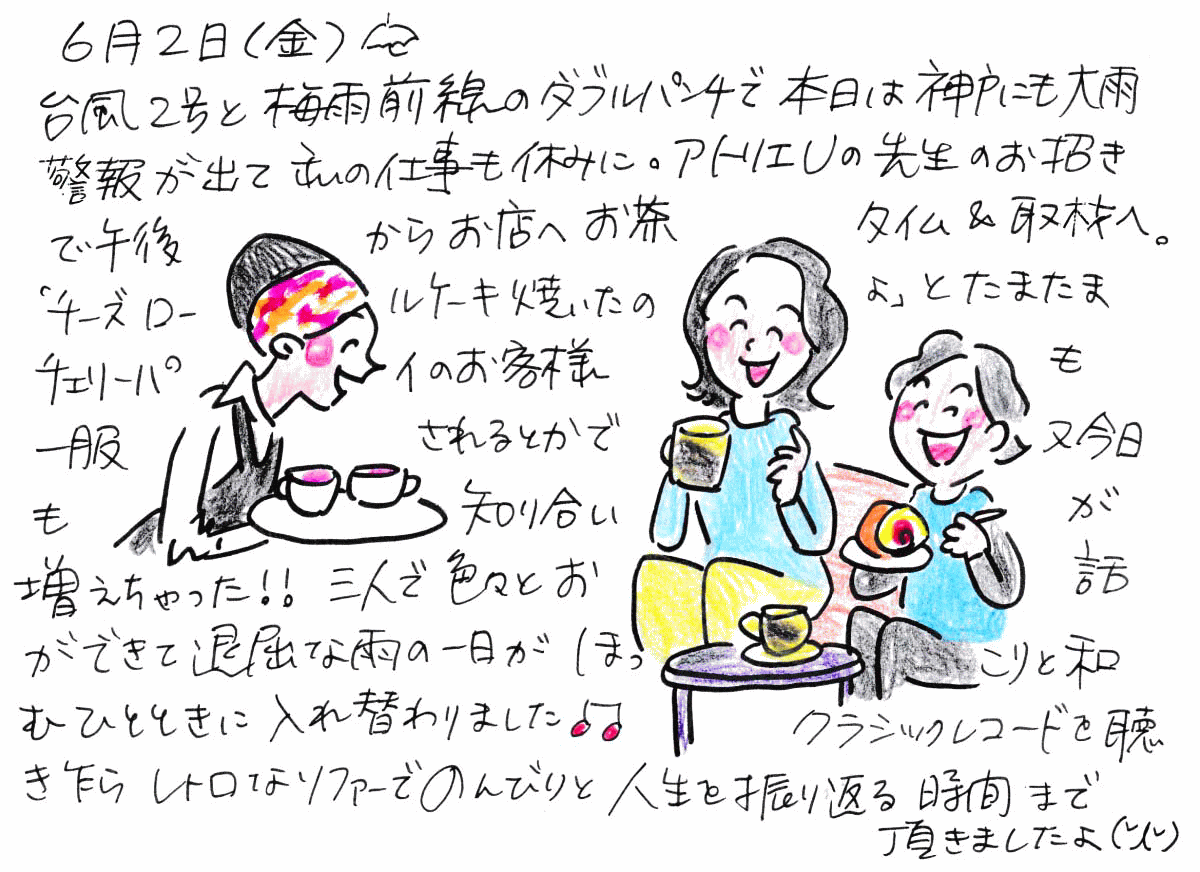 6月2日(金)
台風2号と梅雨前線のダブルパンチで本日は神戸にも大雨
警報が出て私の仕事も休みに。アトリエUの先生のお招き
で午後からお店へお茶タイム&取材へ。
「チーズロールケーキ焼いたのよ」とたまたま
チェリーパイのお客様も
一服されるとかで又今日
も知り合いが
増えちゃった!!三人で色々とお話
ができて退屈な雨の一日がほっこりと和
むひとときに入れ替わりました♫クラシックレコードを聴
き乍らレトロなソファーでのんびりと人生を振り返る時間まで
頂きましたよ(^^)